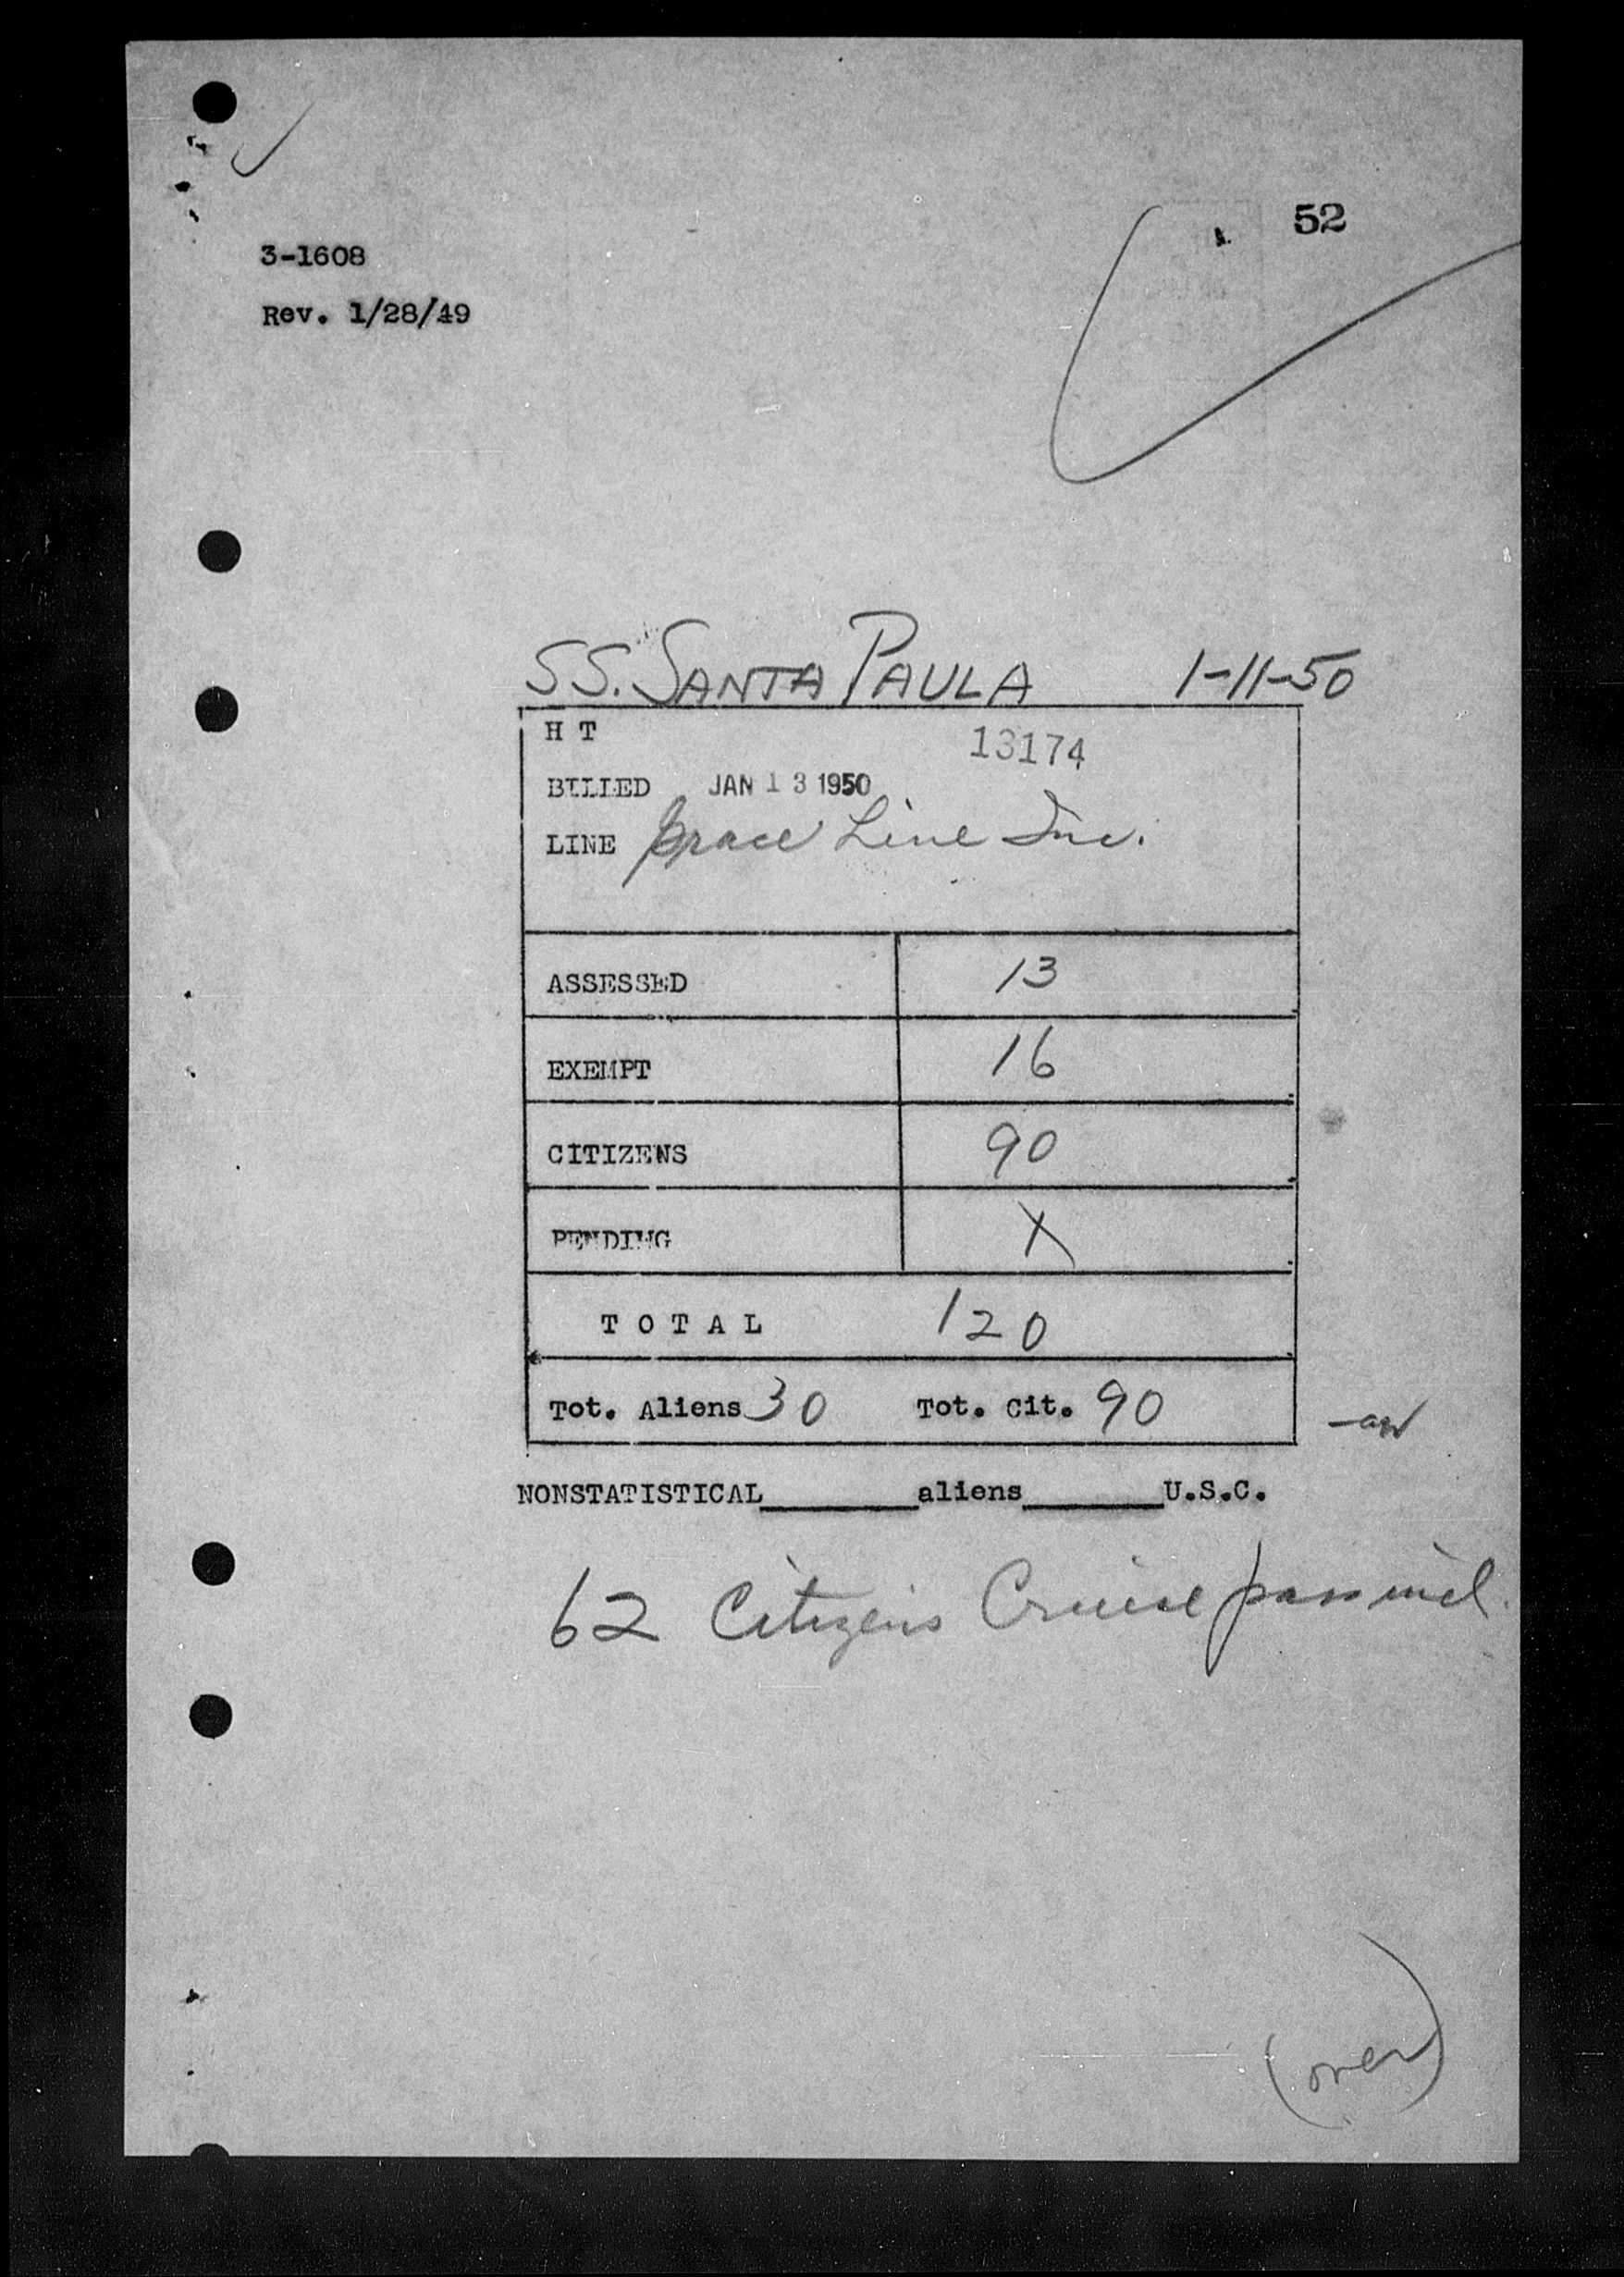 52
3-1608
Rev. 1/28/49
SS. SANTA PAULA 1-11-50
H T 13174
BILLED JAN 13 1950
LINE Grace Line Inc.
ASSESSED 13
EXEMPT 16
CITIZENS 90
PENDING X
TOTAL 120
Tot. Aliens 30 Tot. Cit. 90
NONSTATISTICAL________aliens_______U.S.C.
62 Citizens Cruise pass incl.
(over)